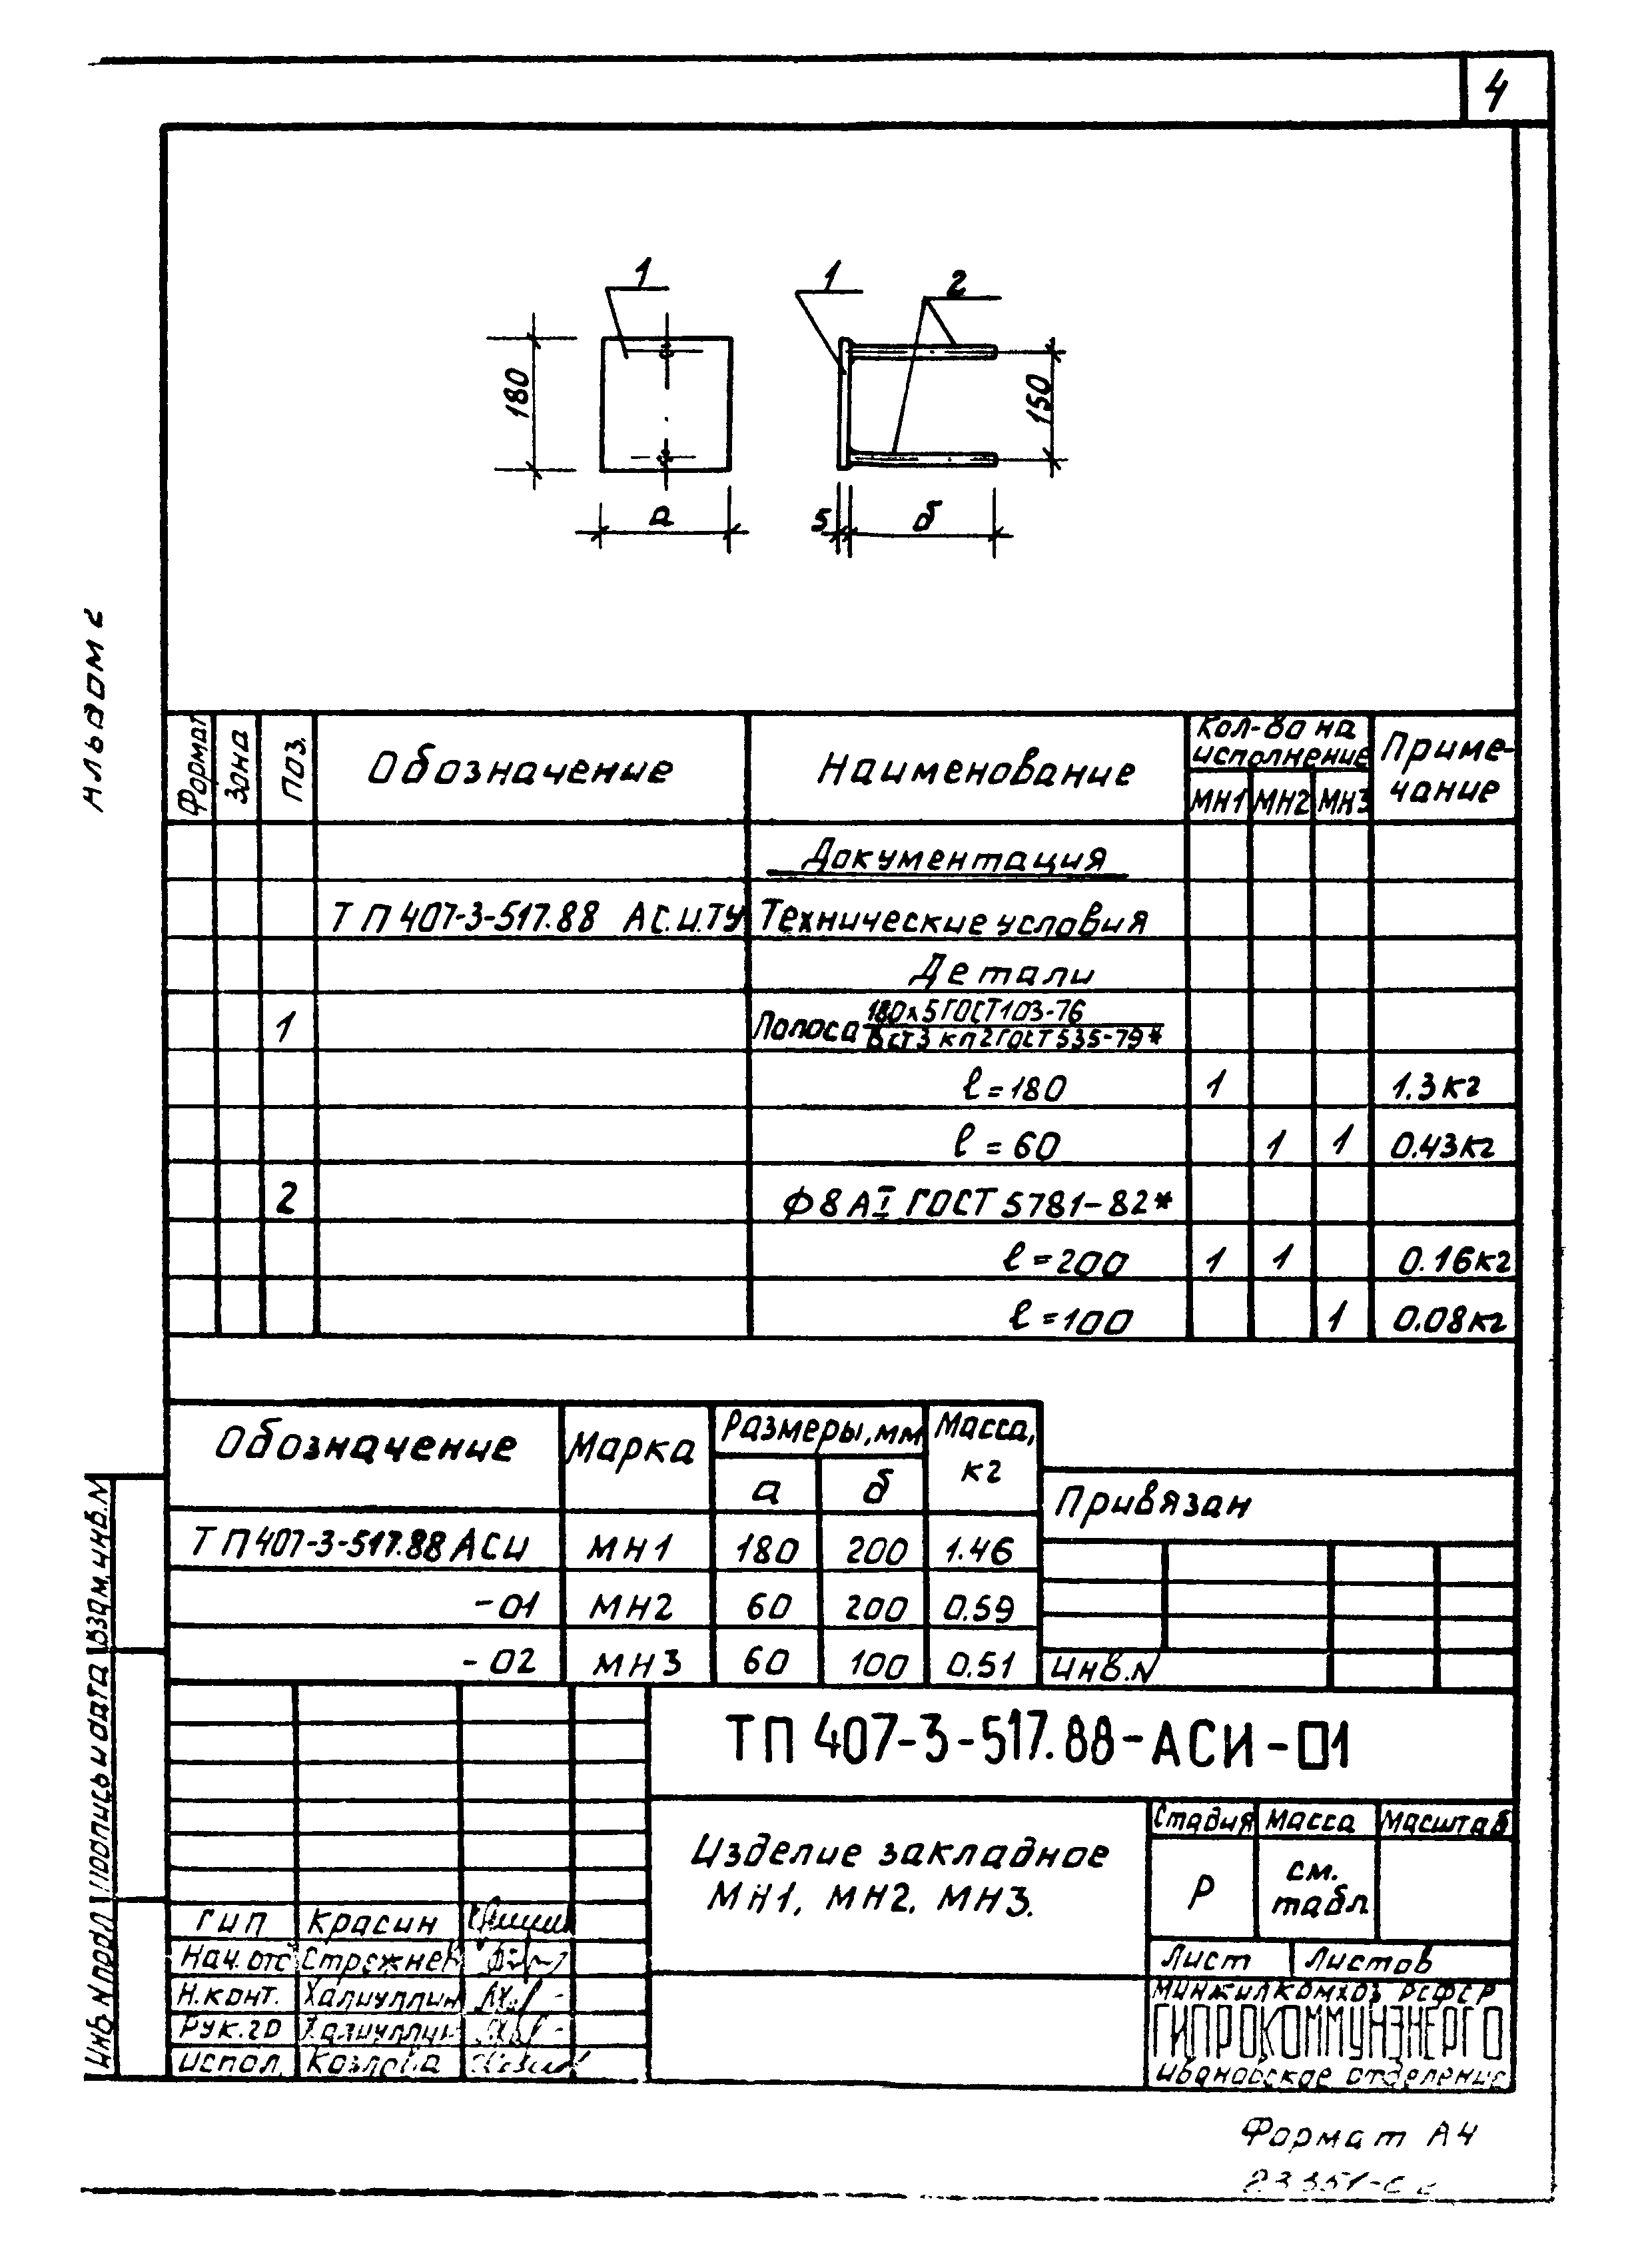 4
1
1
2
180
150
а
5
б
Альбом 2
Формат
Зона
Поз.
Обозначение
Наименование
Кол-во на исполнение
Приме-
чание
МН1 МН2 МН3
Документация
ТП 407-3-517.88 АС.И.ТУ Технические условия
Детали
1 Полоса 180х5 ГОСТ 103-76
Вст3 кп2 ГОСТ 535-79*
ℓ=180 1 1.3кг
ℓ=60 1 1 0.43кг
2 Ф8АI ГОСТ 5781-82*
ℓ=200 1 1 0.16кг
ℓ=100 1 0.08кг
Обозначение Марка Размеры, мм Масса, кг
а б
ТП 407-3-517.88 АСИ МН1 180 200 1.46
-01 МН2 60 200 0.59
-02 МН3 60 100 0.51
Привязан
Инв.N
ТП 407-3-517.88-АСИ-01
Изделие закладное
МН1, МН2, МН3.
Стадия Масса Масштаб
Р см. табл
Лист Листов
Минжилкомхоз РСФСР
ГИПРОКОММУНЭНЕРГО
Ивановское отделение
ГИП Красин
Нач. отс Стрежнев
Н.конт. Халиуллин
Рук.гр Халиуллин
Испол. Козлова
Взам. инв. N
Подпись и дата
Инв. N подл
Формат А4